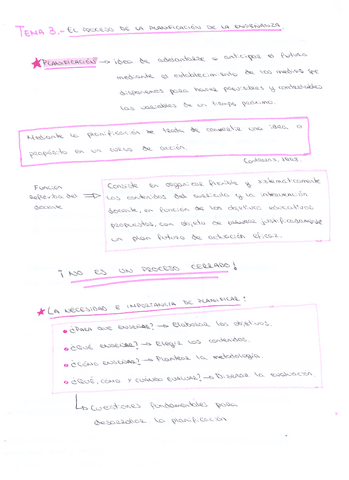 TEMA 3.- EL PROCESO DE LA PLANIFICACIÓN DE LA ENSEÑANZA
PLANIFICACIÓN → idea de adelantarse o anticipar el futuro
mediante el establecimiento de los medios que
disponemos para hacer previsibles y controlables
las variables de un tiempo próximo.
Mediante la planificación se trata de convertir una idea o
propósito en un curso de acción.
Función
reflexiva del
docente
Consiste en organizar flexible y sistemáticamente
los contenidos del currículo y la intervención
docente, en función de los objetivos educativos
propuestos, con objeto de justificadamente
un plan futuro de actuación eficaz.
¡NO ES UN PROCESO CERRADO!
LA NECESIDAD E IMPORTANCIA DE PLANIFICAR:
• ¿PARA QUÉ ENSEÑAR? → Elaborar los objetivos.
• ¿QUÉ ENSEÑAR? → Elegir los contenidos.
• ¿CÓMO ENSEÑAR? → Plantear la metodología
• ¿QUÉ, CÓMO Y CUÁNDO EVALUAR? → Diseñar la evaluación.
Cuestiones fundamentales para
desarrollar la planificación